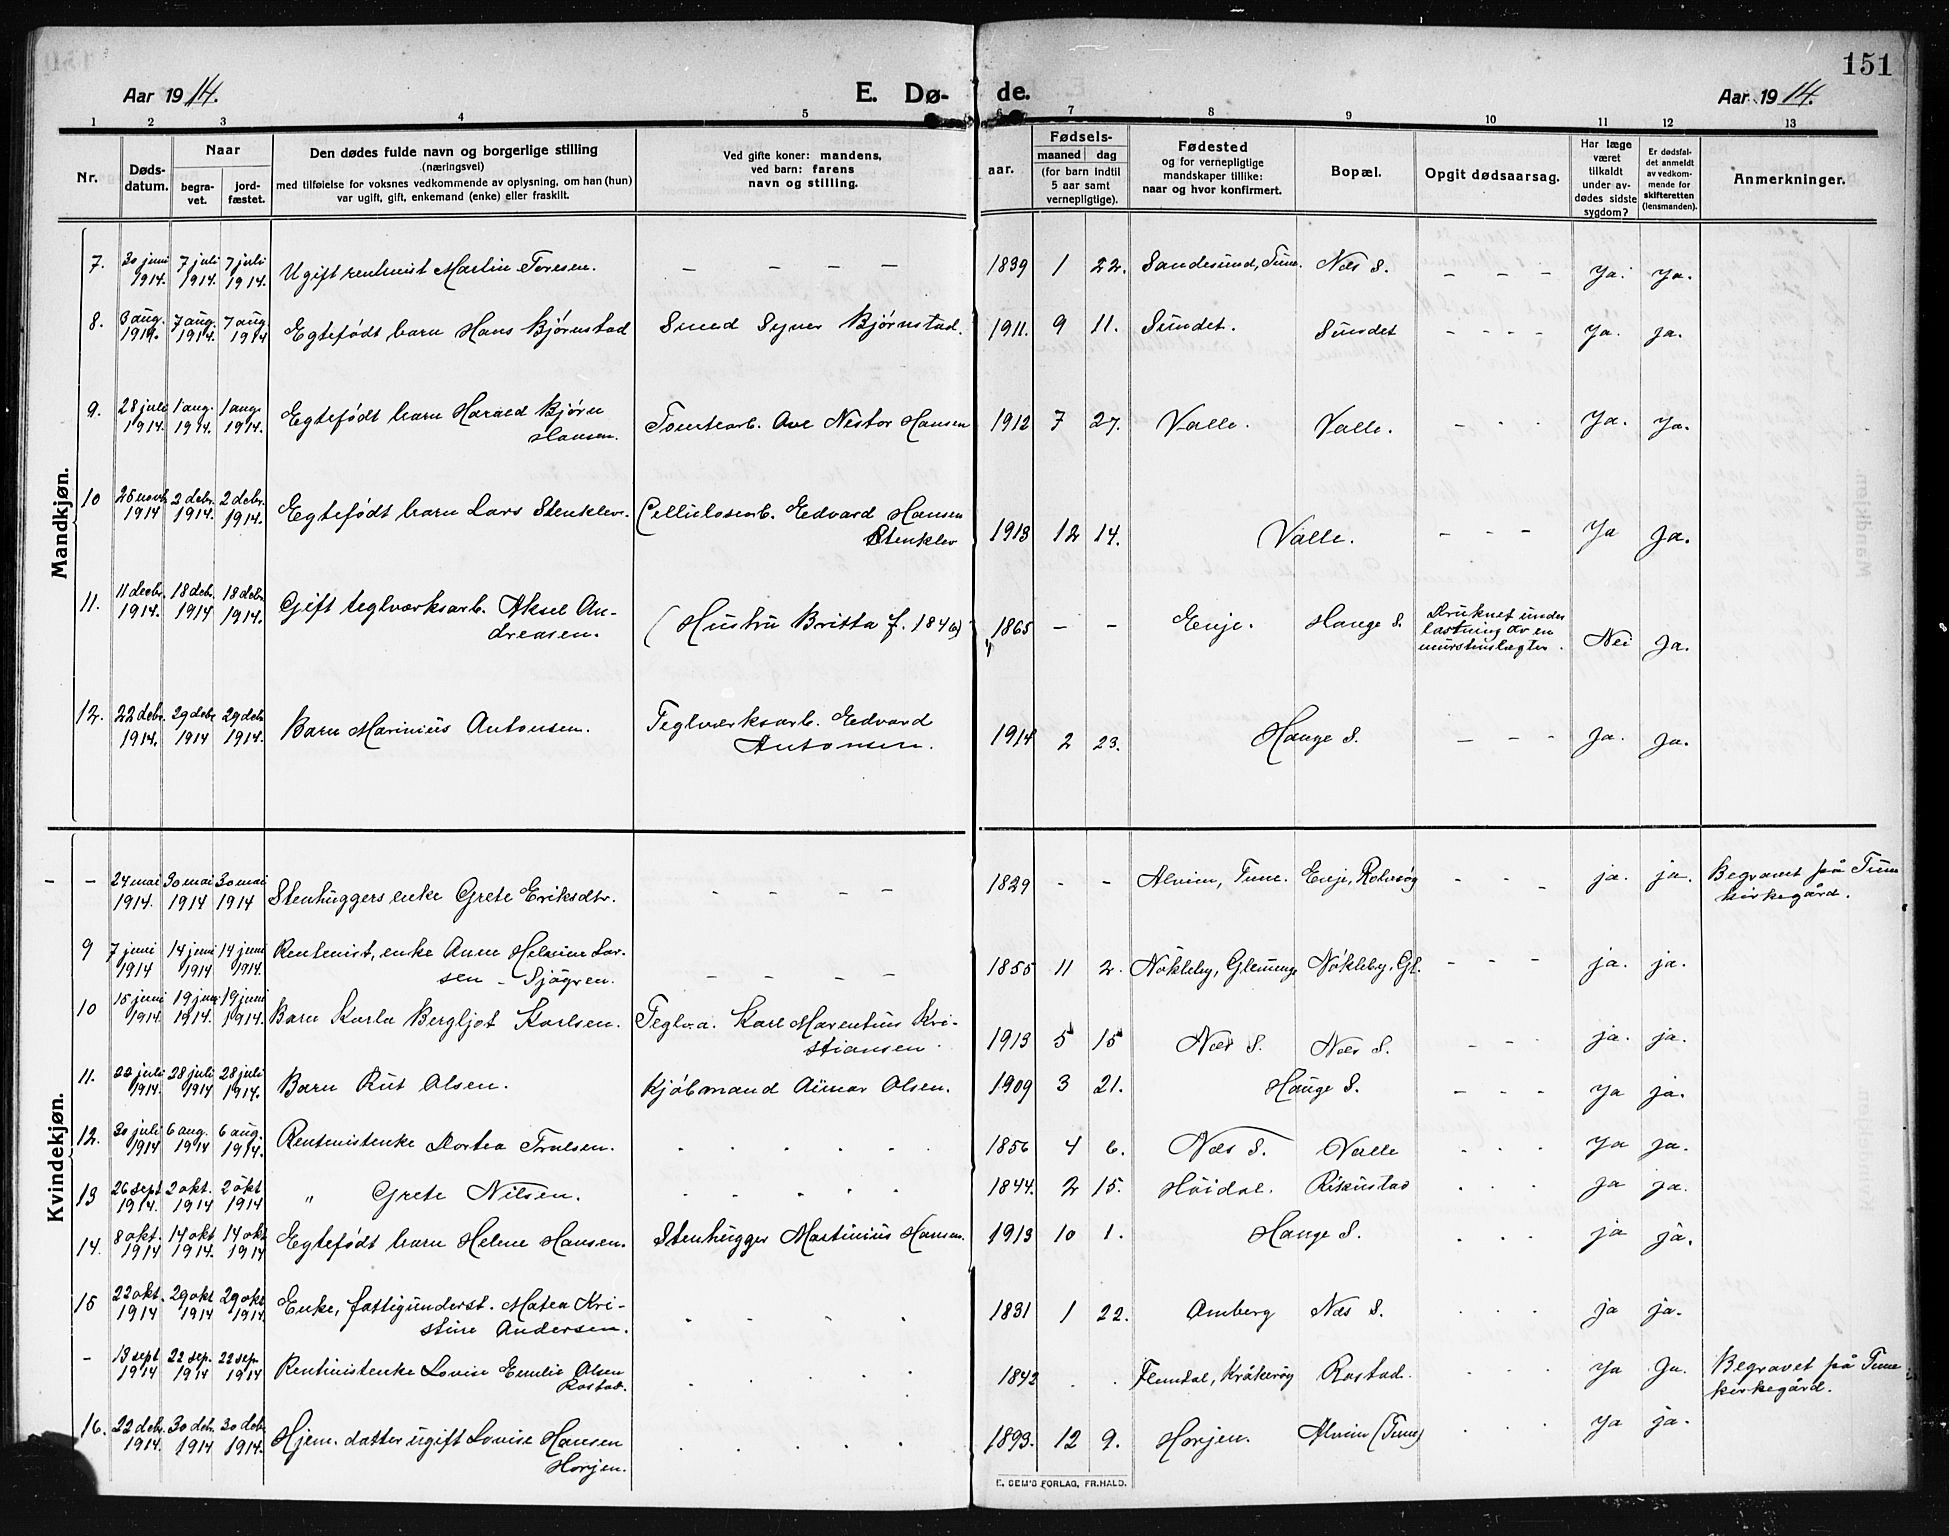 151
Aar 1914.
E. Dø-
de.
Aar 1914.
1 2 3 4 5 6 7 8 9 10 11 12 13
Nr.
Døds-
datum.
Naar
begra-
vet.
jord-
fæstet.
Den dødes fulde navn og borgerlige stilling
(næringsvei)
med tilføielse for voksnes vedkommende av oplysning, om han (hun)
var ugift, gift, enkemand (enke) eller fraskilt.
Ved gifte koner: mandens,
ved barn: farens
navn og stilling.
aar.
Fødsels-
maaned dag
(for barn indtil
5 aar samt
vernepligtige).
Fødested
og for vernepligtige
mandskaper tillike:
naar og hvor konfirmert.
Bopæl.
Opgit dødsaarsag.
Har læge
været
tilkaldt
under av-
dødes sidste
sygdom?
Er dødsfal-
det anmeldt
av vedkom-
mende for
skifteretten
(lensmanden).
Anmerkninger.
Mandkjøn.
7. 30 juni 7 juli 7 juli
1914. 1914. 1914.
Ugift rentenist Martin Toresen. – – – – 1839 1 22. Sandesund, Tune. Næs S. – – – Ja. Ja.
8. 3 aug. 7 aug. 7 aug
1914. 1914. 1914
Egtefødt barn Hans Bjørnstad Smed Syver Bjørnstad. 1911. 9 11. Sundet. Sundet - - - - Ja. ja.
9. 28 juli 1 aug. 1 aug.
1914. 1914. 1914.
Egtefødt barn Harald Bjørn
Hansen.
Tomtearb. Ave Nestor Hansen 1912 7 27. Valle. Valle. - - - Ja. Ja.
10 25 novb. 2 debr. 2 debr.
1914 1914. 1914.
Egtefødt barn Lars Stenklev. Cellulosearb. Edvard Hansen
Stenklev
1913 12 14. Valle. – – – Ja Ja.
11. 11 decbr. 18 debr. 18 debr.
1914. 1914 1914.
Gift teglværksarb. Aksel An-
dreasen.
(Hustru Britta f. 1846) 1865 – – Enje. Hauge S. Druknet under
lastning av en
murstenslægter.
Nei Ja.
12. 22 debr. 29 debr 29 debr
1914. 1914 1914.
Barn Marinius Antonsen. Teglværksarb. Edvard
Antonsen.
1914 2 23. Hauge S. – – – Ja. Ja.
Kvindekjøn.
– – 24 mai 30 mai 30 mai
1914. 1914 1914
Stenhuggers enke Grete Eriksdtr. - - - - 1829 - - Alvim, Tune. Enje, Rolvsøy - - - ja. ja. Begravet på Tune
kirkegård.
9 7 juni 14 juni 14 juni
1914 1914 1914.
Rentenist, enke Anne Helvine Lar-
sen - Sjögren.
– – – – 1855 11 2. Nökleby, Glemmge Nökleby, Gl. - - - ja. ja.
10 15 juni 19 juni 19 juni
1914. 1914. 1914.
Barn Karla Bergljot Karlsen. Teglv.a. Karl Marentius Kri-
stiansen.
1913 5 15 Næs S. Næs S. - - - ja. ja.
11. 22 juli 28 juli 28 juli
1914. 1914 1914.
Barn Rut Olsen. Kjøbmand Aimar Olsen. 1909 3 21. Hauge S. - - - Ja ja.
12. 30 juli 6 aug. 6 aug.
1914 1914 1914.
Rentenistenke Dortea Trulsen. . . . . 1856 4 6. Næs S. Valle . . . Ja ja.
13 26 sept 2 okt. 2 okt
1914. 1914 1914
" Grete Nilsen. . . . . 1844. 2 15. Höidal. Riskustad . . . Ja ja.
14. 8 okt. 14 okt 14 okt
1914 1914. 1914
Egtefødt barn Helene Hansen. Stenhugger Martinius Hansen. 1913 10 1. Hauge S. . . . ja ja.
15 22 okt. 29 okt 29 okt
1914 1914 1914
Enke, fattigunderst. Matea Kri-
stine Andersen.
. . . . 1831 1 22. Amberg Næs S. . . . ja ja.
- 13 sept 22 sep. 22 sep.
1914 1914 1914
Rentenistenke Lovise Emilie Olsen
Rostad.
. . . . 1842 . . Flemdal, Kråkerøy Rostad. . . . Ja Ja. Begravet på Tune
kirkegård.
16. 22 debr. 30 debr. 30 debr
1914. 1914 1914.
Hjem. datter ugift Lovise Hansen
Horgen.
. . . . 1893. 12 9. Horjen. Alvim (Tune) . . . Ja ja.
E. SEM'S FORLAG, FR.HALD.